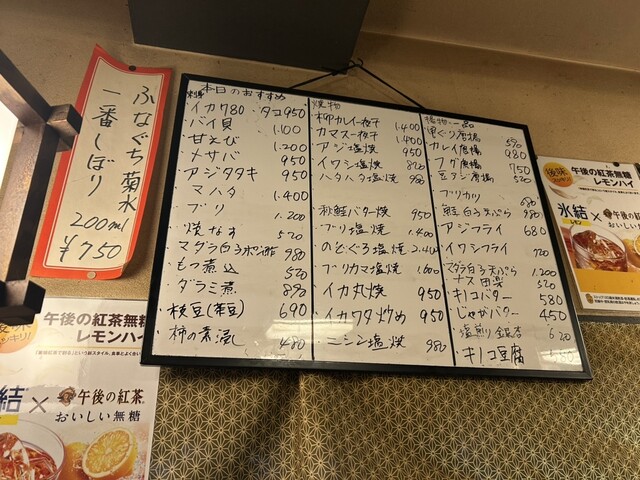 ふなぐち菊水
一番しぼり
200ml
¥750
本日のおすすめ
イカ780 タコ950
バイ貝 1.100
甘えび 1.200
メサバ 950
アジタタキ 950
マハタ 1.400
ブリ 1.200
焼なす 520
マダラ白子ポン酢 980
もつ煮込 520
ダラミ煮 890
枝豆(茶豆) 690
柿の素浸し 480
焼物
柳カレイ一夜干 1.400
カマス一夜干 1.400
アジ塩焼 950
イワシ塩焼 820
ハタハタ塩焼 980
秋鮭バター焼 950
ブリ塩焼 1.400
のどぐろ塩焼 2.400
ブリカマ塩焼 1.600
イカ丸焼 950
イカワタ炒め 950
ニシン塩焼 980
揚物・一品
カレイ唐揚 980
フグ唐揚 750
豆アジ唐揚 520
ブリカツ 680
鮭白子天ぷら 980
アジフライ 680
イワシフライ 720
マダラ白子天ぷら 1.200
ナス田楽 520
キノコバター 580
じゃがバター 450
塩煎り銀杏 620
キノコ豆腐
午後の紅茶無糖
レモンハイ
氷結
レモン
×
午後の紅茶
おいしい無糖
午後の紅茶無糖
レモンハイ
結
×
午後の紅茶
おいしい無糖